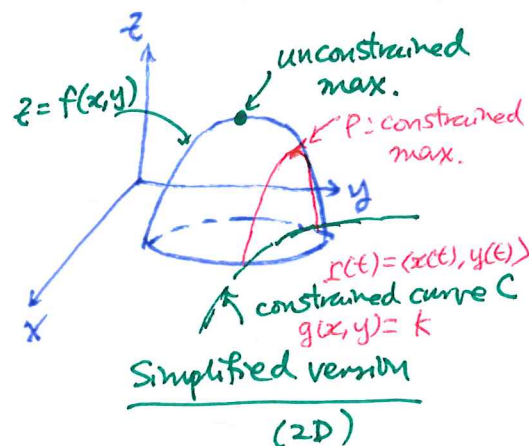 z
unconstrained
max.
z = f(x,y)
P: constrained
max.
y
r(t) = <x(t), y(t)>
constrained curve C
g(x,y) = k
x
Simplified version
(2D)